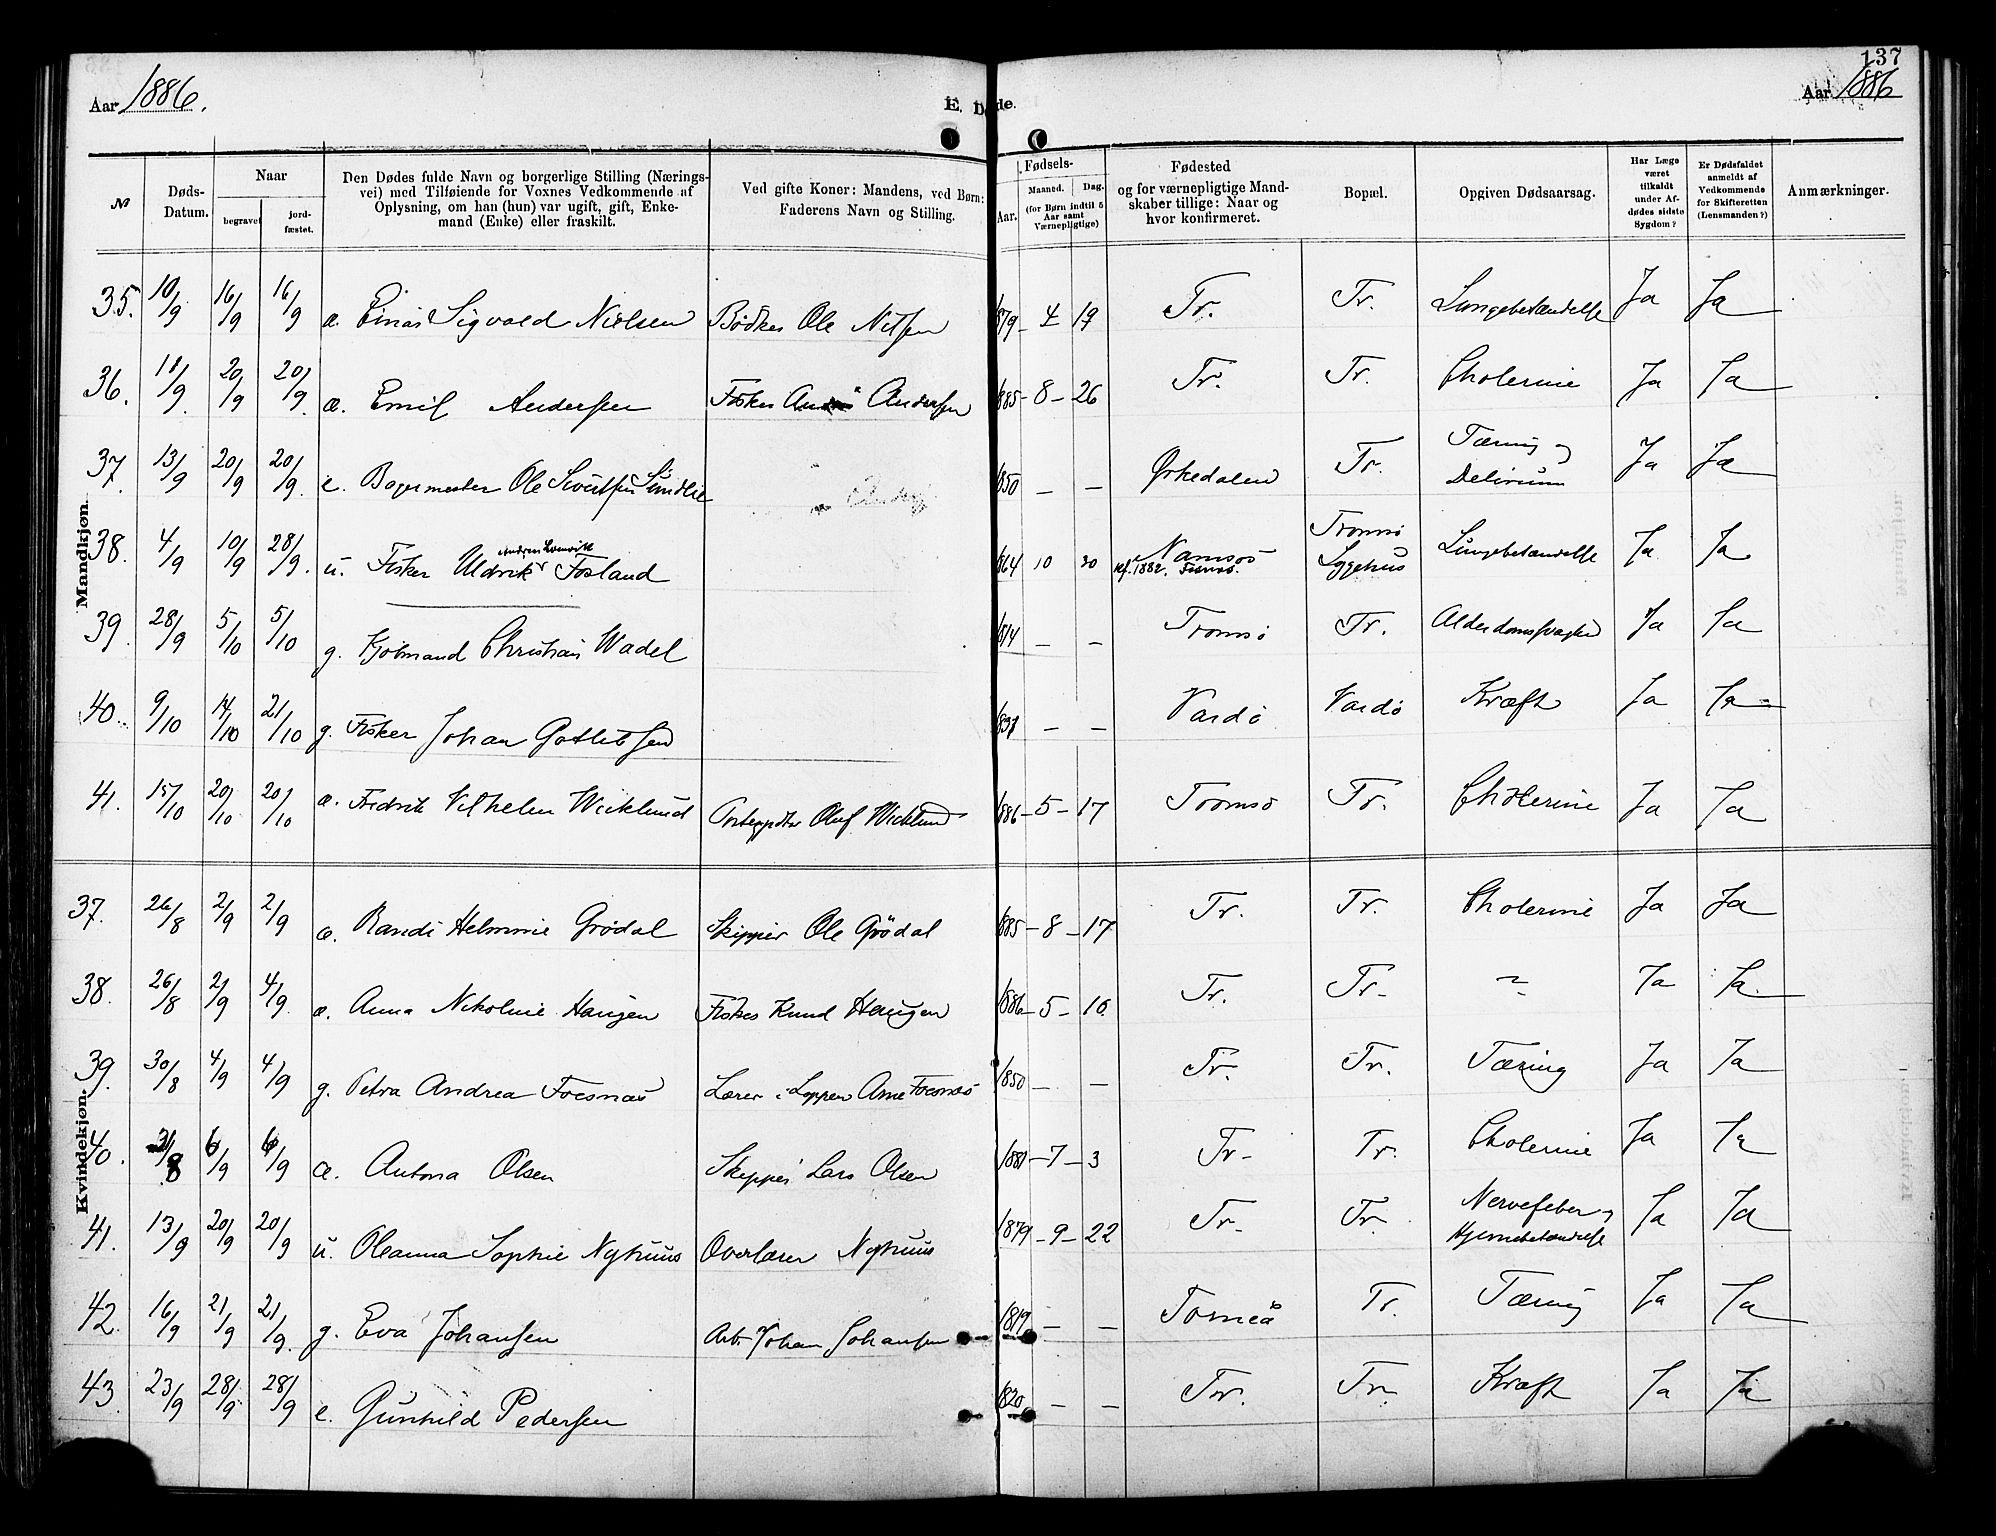 137
Aar 1886.
E. Døde.
Aar 1886
№
Døds-Datum.
Naar
begravet
jord-fæstet.
Den Dødes fulde Navn og borgerlige Stilling (Nærings-
vei) med Tilføiende for Voxnes Vedkommende af
Oplysning, om han (hun) var ugift, gift, Enke-
mand (Enke) eller fraskilt.
Ved gifte Koner: Mandens, ved Børn:
Faderens Navn og Stilling.
Fødsels-
Aar. Maaned. Dag.
(for Børn indtil 5
Aar samt
Værnepligtige)
Fødested
og for værnepligtige Mand-
skaber tillige: Naar og
hvor konfirmeret.
Bopæl.
Opgiven Dødsaarsag.
Har Læge
været
tilkaldt
under Af-
dødes sidste
Sygdom?
Er Dødsfaldet
anmeldt af
Vedkommende
for Skifteretten
(Lensmanden?)
Anmærkninger.
Mandkjøn.
35. 10/9 16/9 16/9 æ. Einar Sigvald Nielsen Bødker Ole Nilsen 1879 – 4 – 19 Tr. Tr. Lungebetændelse Ja Ja
36. 11/9 20/9 20/9 æ. Emil Andersen Fisker Andersen 1885 – 8 – 26 Tr. Tr. Cholerine Ja Ja
37. 13/9 20/9 20/9 e. Bagermester Ole Sivertsen 1850 – – Ørkedalen Tr. Tæring og Delirium Ja Ja
38. 4/9 10/9 28/9 u. Fisker Uldrik Fosland 1864 10 20 Namsos kf. 1882. Tromsø Sygehus Lungebetændelse Ja Ja
39. 28/9 5/10 5/10 g. Kjøbmand Christian Wadel 1814 – – Tromsø Tr. Alderdomssvaghed Ja Ja
40. 9/10 14/10 21/10 g. Fisker Johan Gotlibsen – – Vardø Vardø Kræft Ja Ja
41. 15/10 20/10 20/10 æ. Fredrik Vilhelm Wicklund Oluf Wicklund 1886 – 5 – 17 Tromsø Tr. Cholerine Ja Ja
Kvindekjøn.
37. 26/8 2/9 2/9 æ. Randi Helmine Grødal Skipper Ole Grødal 1885 – 8 – 17 Tr. Tr. Cholerine Ja Ja
38. 26/8 2/9 4/9 æ. Anna Nikoline Haugen Fisker Knud Haugen 1886 – 5 – 16 Tr. Tr. ~ Ja Ja
39. 30/8 4/9 4/9 g. Petra Andrea Foesnæs Lærer i Loppen Arne Foesnæs 1850 – – Tr. Tr. Tæring Ja Ja
40. 31/8 6/9 6/9 æ. Antona Olsen Skipper Lars Olsen 1881 – 7 – 3 Tr. Tr. Cholerine Ja Ja
41. 13/9 20/9 20/9 u. Oleanna Sophie Nyhuus Overlærer Nyhuus 1879 – 9 – 22 Tr. Tr. Nervefeber og Hjernebetændelse Ja Ja
42. 16/9 21/9 21/9 g. Eva Johansen Arb. Johan Johansen 1819 – – Torneå Tr. Tæring Ja Ja
43. 23/9 28/9 28/9 e. Gunhild Pedersen 1820 – – Tr. Tr. Kræft Ja Ja